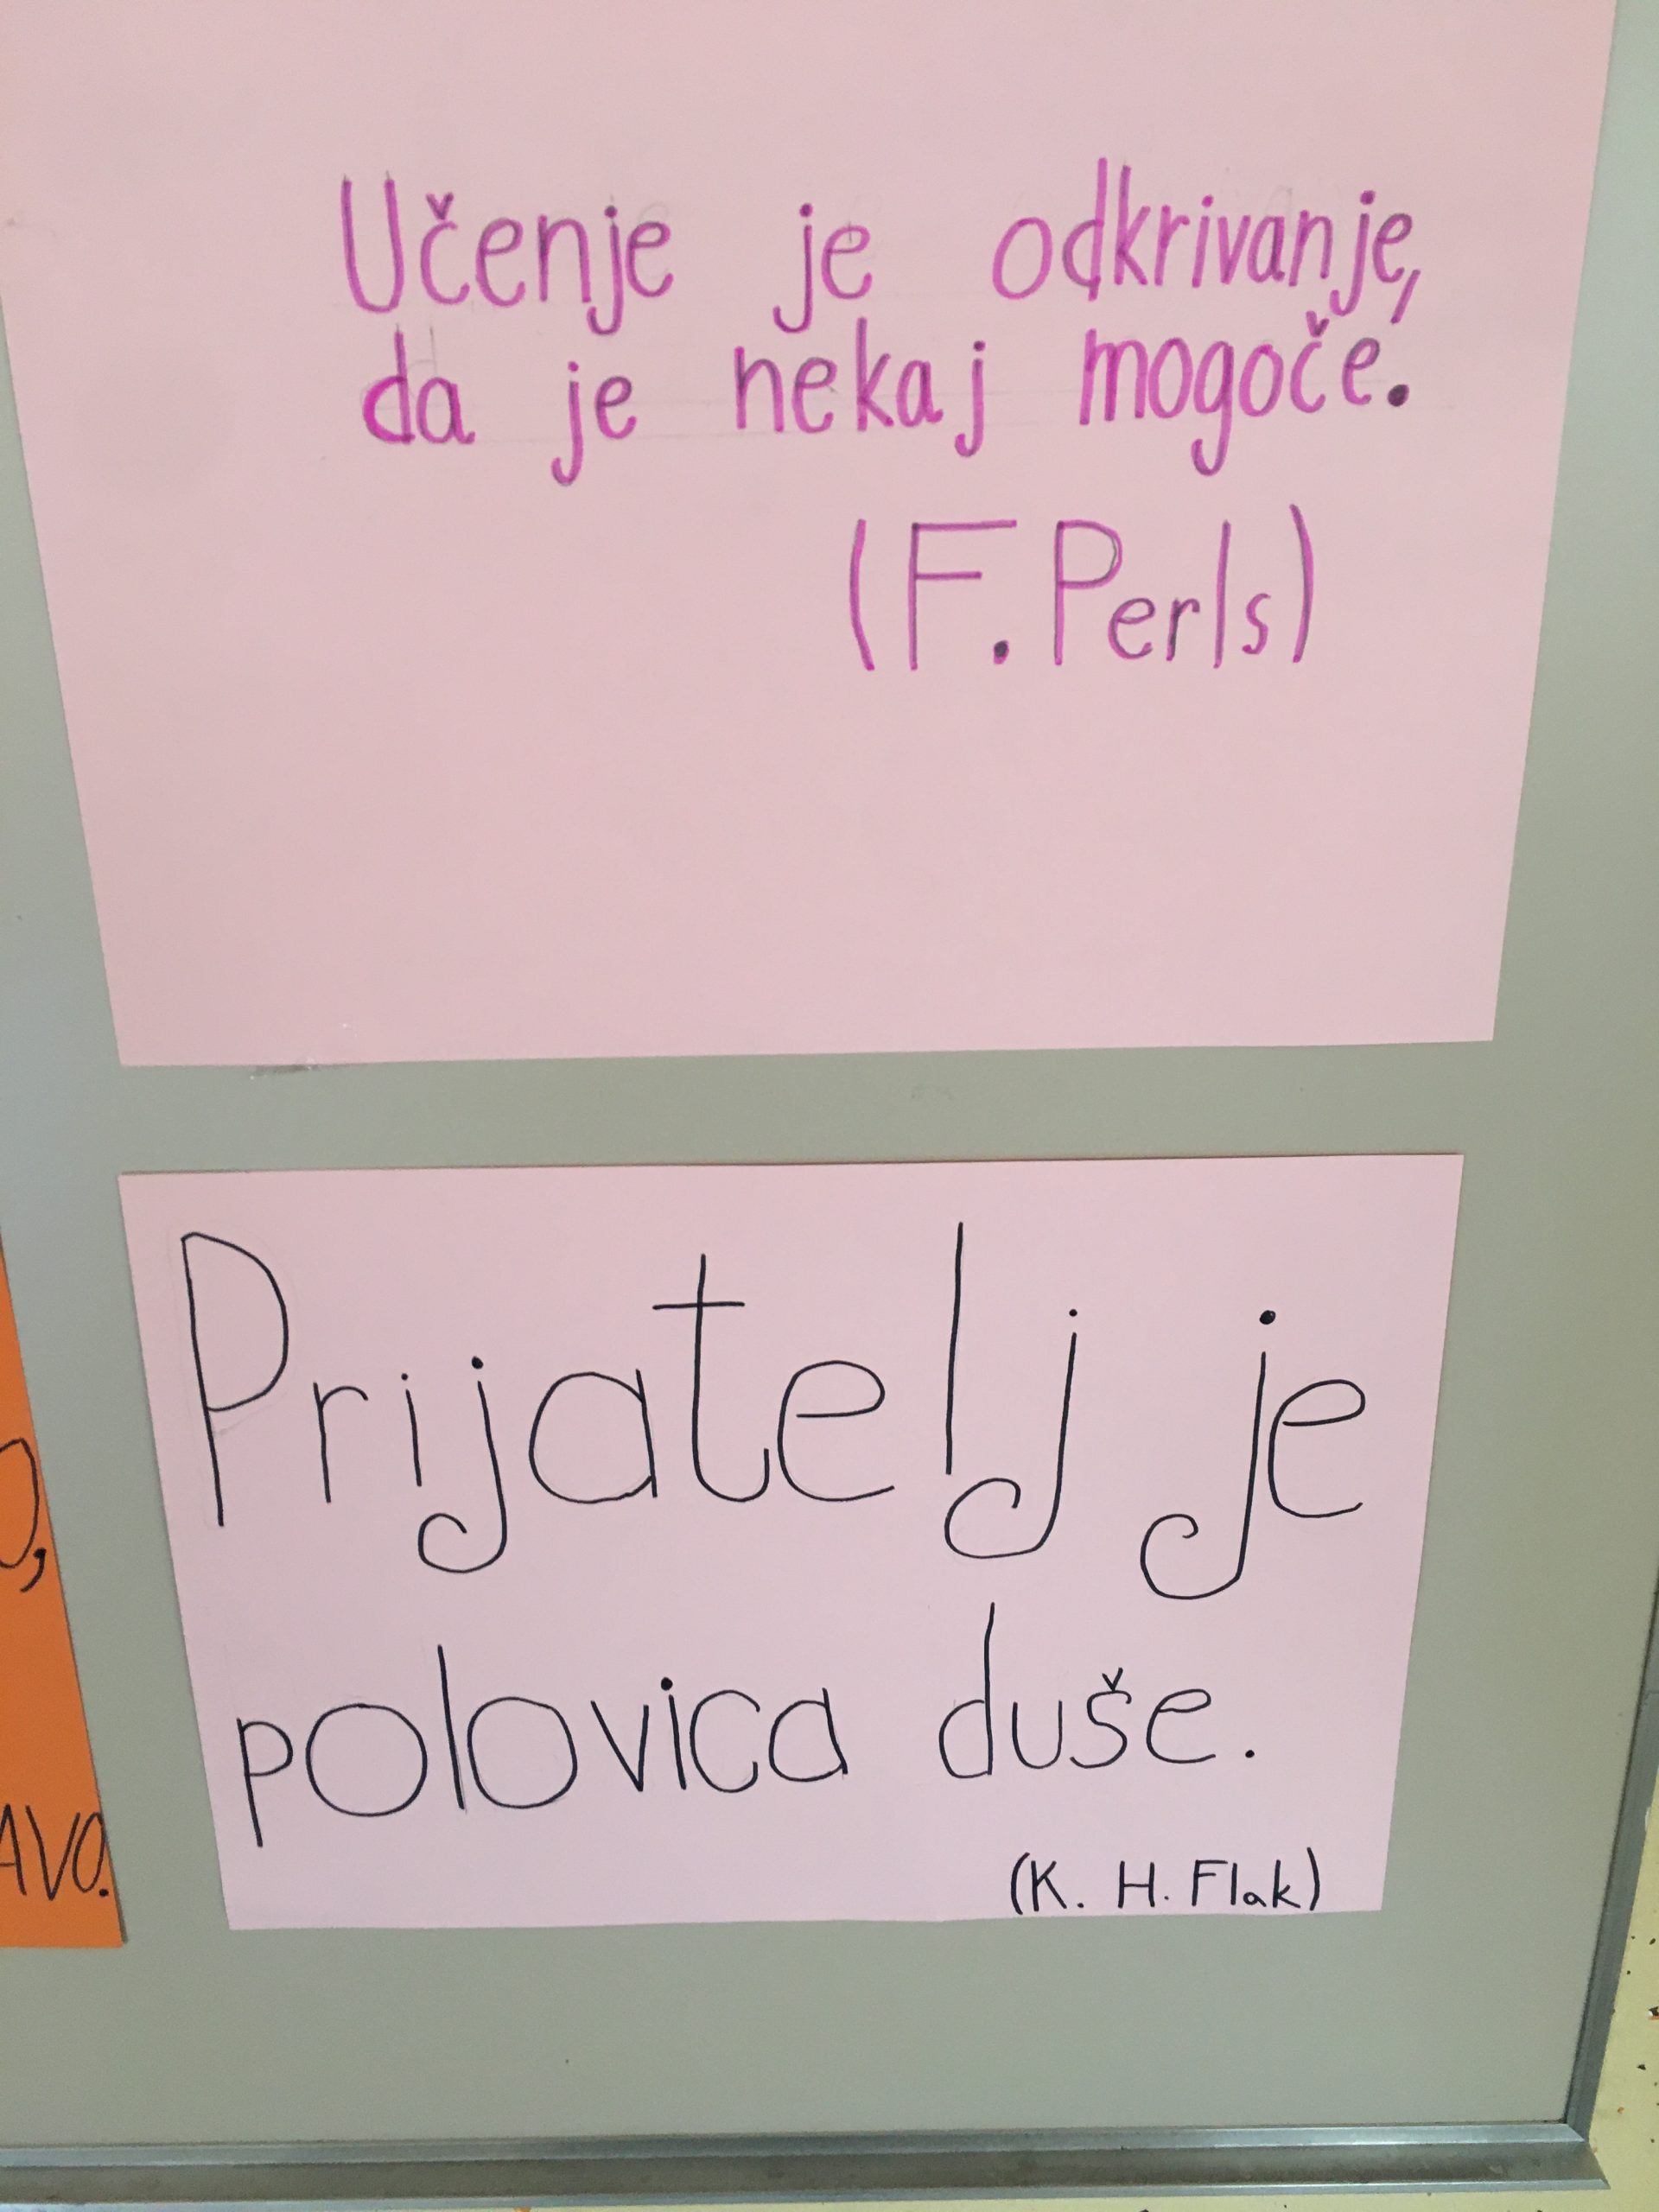 Učenje je odkrivanje,
da je nekaj mogoče.
(F. Perls)
Prijatelj je
polovica duše.
(K. H. Flak)